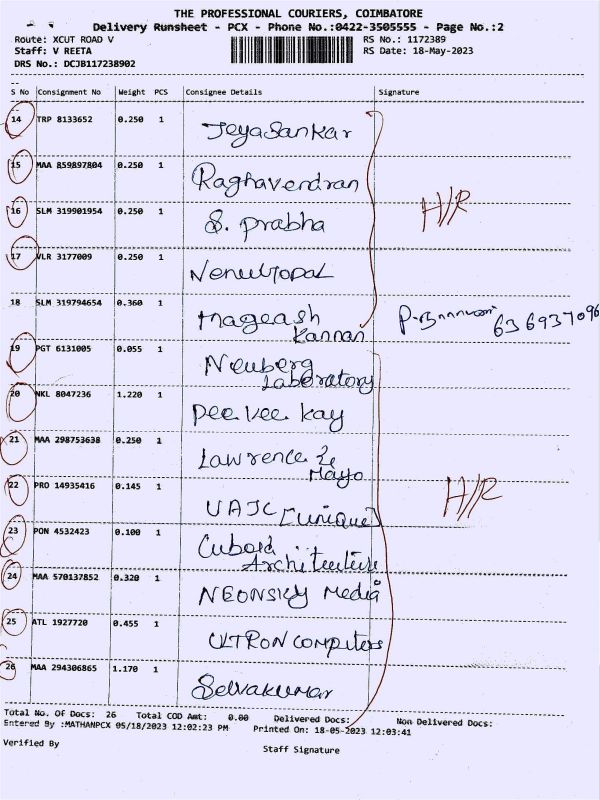 THE PROFESSIONAL COURIERS, COIMBATORE
Delivery Runsheet - PCX - Phone No.:0422-3505555 - Page No.:2
Route: XCUT ROAD V RS No.: 1172389
Staff: V REETA RS Date: 18-May-2023
DRS No.: DCJB117238902
S No Consignment No Weight PCS Consignee Details Signature
14 TRP 8133652 0.250 1 Jeyasankar
15 MAA 859897804 0.250 1 Raghavendran
H/R
16 SLM 319901954 0.250 1 S. Prabha
17 VLR 3177009 0.250 1 Venugopal
18 SLM 319794654 0.360 1 Mageash
Kannan 636937096
19 PGT 6131005 0.055 1 Neuberg
Laboratory
20 NKL 8047236 1.220 1 Pee Vee Kay
21 MAA 298753638 0.250 1 Lawrence &
Mayo
22 PRO 14935416 0.145 1 H/R
UAJC [Unique]
23 PON 4532423 0.100 1 Cuboid
Architecture
24 MAA 570137852 0.320 1 NEONSKY Media
25 ATL 1927720 0.455 1 ULTRON Computers
26 MAA 294306865 1.170 1 Selvakumar
Total No. Of Docs: 26 Total COD Amt: 0.00 Delivered Docs: Non Delivered Docs:
Entered By :MATHANPCX 05/18/2023 12:02:23 PM Printed On: 18-05-2023 12:03:41
Verified By Staff Signature